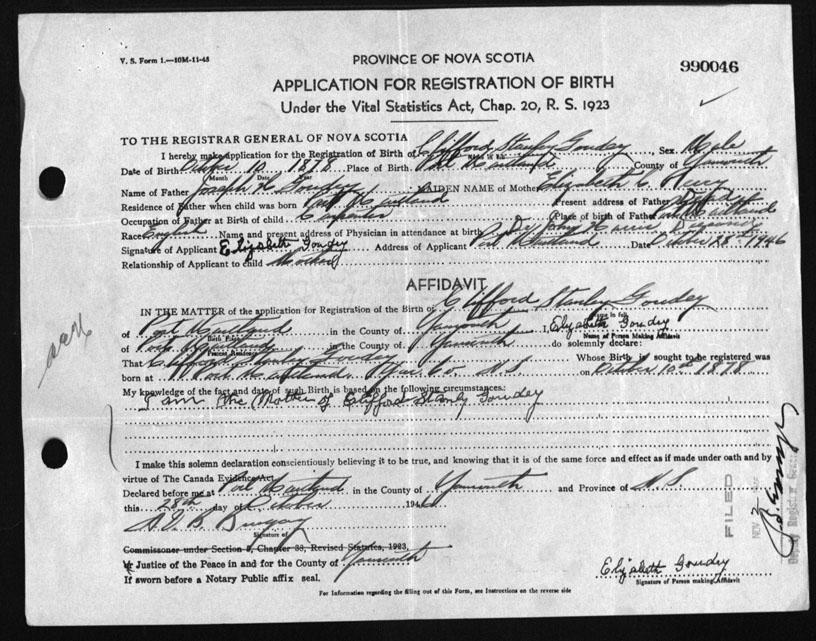 V. S. Form 1.—10M-11-45
PROVINCE OF NOVA SCOTIA
990046
APPLICATION FOR REGISTRATION OF BIRTH
Under the Vital Statistics Act, Chap. 20, R. S. 1923
TO THE REGISTRAR GENERAL OF NOVA SCOTIA
I hereby make application for the Registration of Birth of Clifford Stanley Goudey, Sex Male
Date of Birth October 10 1878 Place of Birth Port Maitland County of Yarmouth
Month Day Year
Name of Father Joseph Goudey MAIDEN NAME of Mother Elizabeth
Residence of Father when child was born Port Maitland Present address of Father
Occupation of Father at Birth of child Carpenter Place of birth of Father Port Maitland
Race English Name and present address of Physician in attendance at birth Dr.
Signature of Applicant Elizabeth Goudey Address of Applicant Port Maitland Date October 28th 1946
Relationship of Applicant to child Mother
AFFIDAVIT
IN THE MATTER of the application for Registration of the Birth of Clifford Stanley Goudey
Name in full
of Port Maitland in the County of Yarmouth I, Elizabeth Goudey
Birth Place Name of Person Making Affidavit
of Port Maitland in the County of Yarmouth do solemnly declare:
Present Residence
That Clifford Stanley Goudey Whose Birth is sought to be registered was
born at Port Maitland, Yar. Co. N.S. on October 10th 1878.
My knowledge of the fact and date of such Birth is based on the following circumstances:
I am the Mother of Clifford Stanly Goudey
I make this solemn declaration conscientiously believing it to be true, and knowing that it is of the same force and effect as if made under oath and by
virtue of The Canada Evidence Act.
Declared before me at Port Maitland in the County of Yarmouth and Province of N.S.
this 28th day of October 1946
Signature of
Commissoner under Section 8, Chapter 38, Revised Statutes, 1923,
or Justice of the Peace in and for the County of Yarmouth
If sworn before a Notary Public affix seal.
Elizabeth Goudey
Signature of Person making Affidavit
For Information regarding the filling out of this Form, see Instructions on the reverse side
FILED
NOV 2
Deputy Registrar General